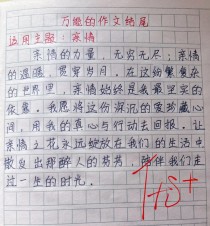 万能的作文结尾
适用主题：亲情
亲情的力量，无穷无尽；亲情
的温暖，贯穿岁月。在这纷繁复杂
的世界里，亲情始终是我最坚实的
依靠。我愿将这份深沉的爱珍藏心
间，用我的真心与行动去回报。让
亲情之花永远绽放在我们的生活中
散发出那醉人的芬芳，陪伴我们走
过一生的时光。